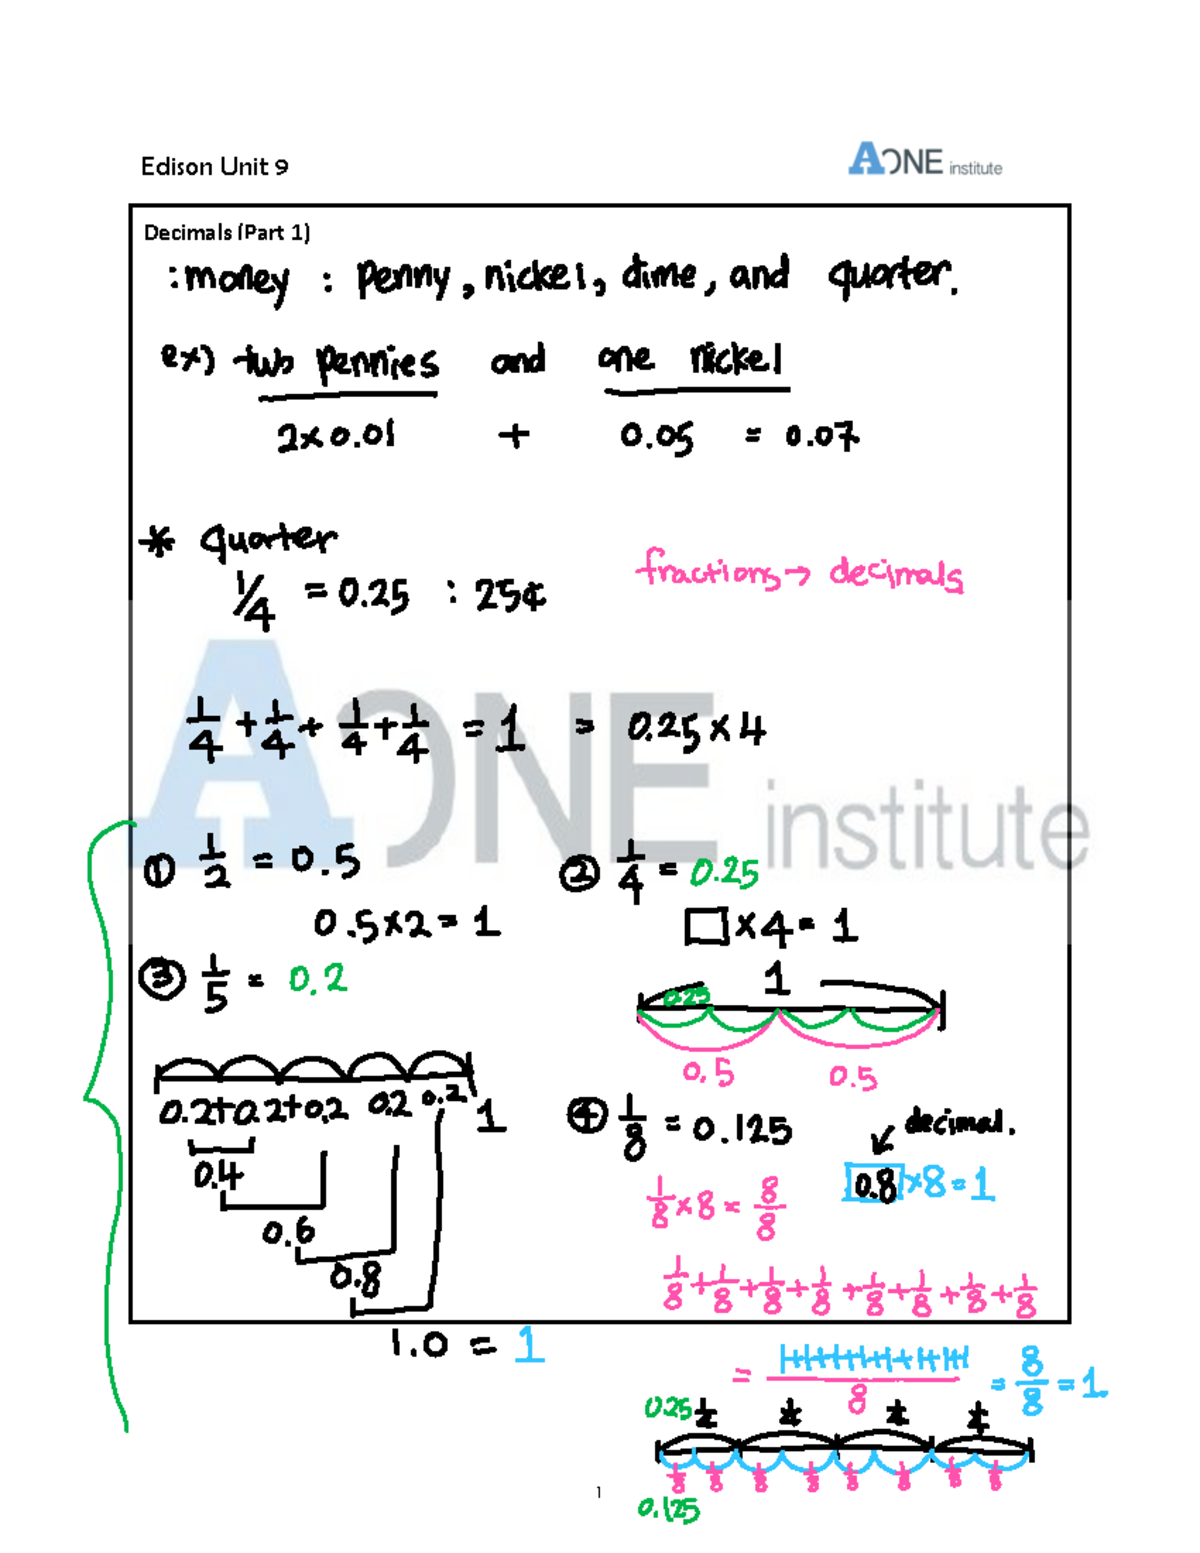 Edison Unit 9
AONE institute
Decimals (Part 1)
: money : penny, nickel, dime, and quarter.
ex) two pennies and one nickel
2×0.01 + 0.05 = 0.07
* quarter
1/4 = 0.25 : 25¢
fractions → decimals
1/4 + 1/4 + 1/4 + 1/4 = 1 = 0.25 × 4
AONE institute
① 1/2 = 0.5
0.5×2 = 1
② 1/4 = 0.25
□ × 4 = 1
③ 1/5 = 0.2
1
0.25
0.5 0.5
0.2+0.2+0.2 0.2 0.2 1
0.4
0.6
0.8
1.0 = 1
④ 1/8 = 0.125
decimal.
0.8 ×8 = 1
1/8 × 8 = 8/8
1/8 + 1/8 + 1/8 + 1/8 + 1/8 + 1/8 + 1/8 + 1/8
= 1+1+1+1+1+1+1+1/8 = 8/8 = 1
0.25 1/4 1/4 1/4 1/4
1/8 1/8 1/8 1/8 1/8 1/8 1/8 1/8
0.125
1